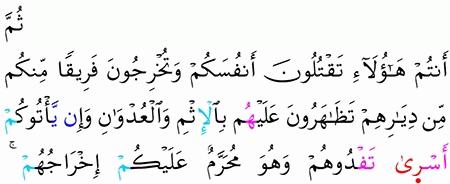 ثُمَّ
أَنتُمْ هَـٰٓؤُلَآءِ تَقْتُلُونَ أَنفُسَكُمْ وَتُخْرِجُونَ فَرِيقًا مِّنكُم
مِّن دِيَـٰرِهِمْ تَظَـٰهَرُونَ عَلَيْهُم بِالْإِثْمِ وَالْعُدْوَٰنِ وَإِن يَّأْتُوكُمْ
أَسْرِىٰ تَفْدُوهُمْ وَهُوَ مُحَرَّمٌ عَلَيْكُمْ إِخْرَاجُهُمْ ۚ